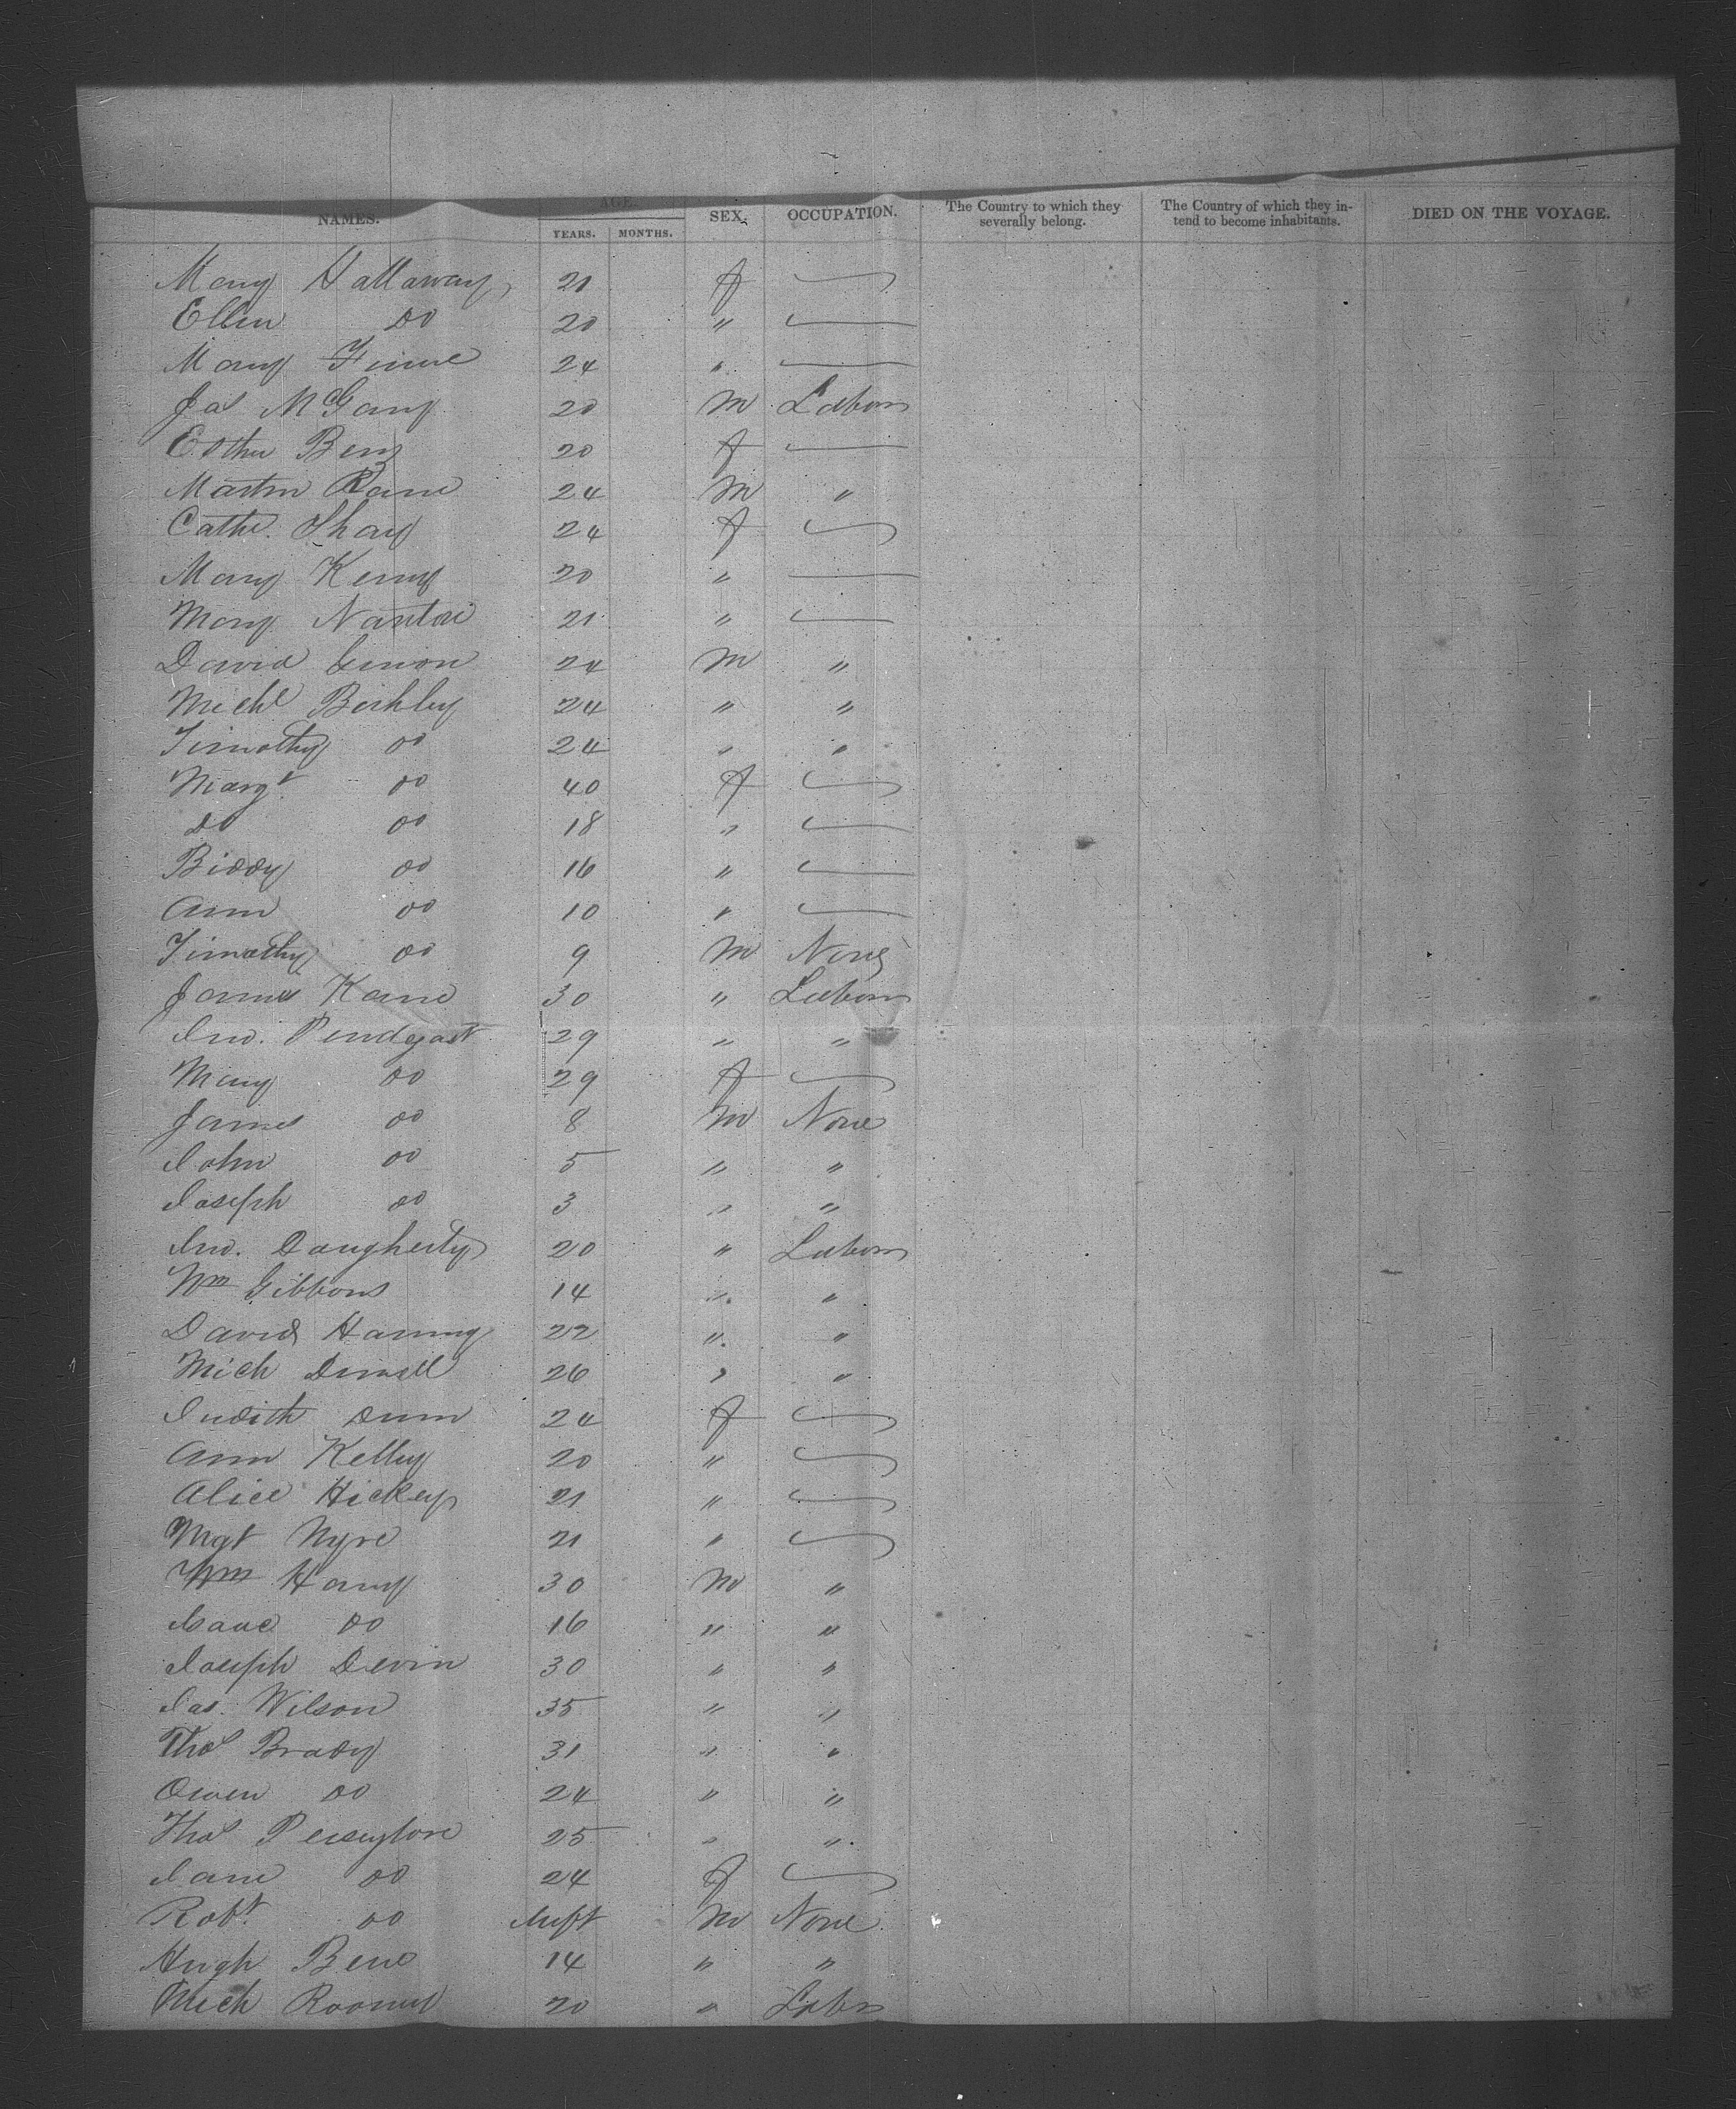 NAMES. AGE. SEX. OCCUPATION. The Country to which they severally belong. The Country of which they intend to become inhabitants. DIED ON THE VOYAGE.
YEARS. MONTHS.
Mary Hallaway 21 f
Ellen Do 20 "
Mary 24 "
Jas McGany 20 M Labor
Esther 20 f
Martin Kane 24 M "
Cathe. Shay 24 f
Mary Kenny 20 "
Mary 21 "
David 24 M "
Michl Birkley 24 " "
Timothy do 24 " "
Margt do 40 f
Do do 18 "
Biddy do 16 "
Ann do 10 "
Timothy do 9 M None
James Kane 30 " Labor
Jno. Pendgast 29 " "
Mary do 29 f
James do 8 M None
John do 5 " "
Joseph do 3 " "
Jno. Daugherty 20 " Labor
Wm Gibbons 14 " "
David 22 " "
Mich 26 " "
Judith Dunn 24 f
Ann Kelly 20 "
Alice Hickey 21 "
Mgt Nyre 21 "
Wm 30 M "
Isaac Do 16 " "
Joseph Devin 30 " "
Jas. Wilson 35 " "
Thos Brady 31 " "
Owen Do 24 " "
Thos 25 " "
Jane do 24 f
Robt. do Inft M None
Hugh 14 " "
Mich Rooney 20 " Labr